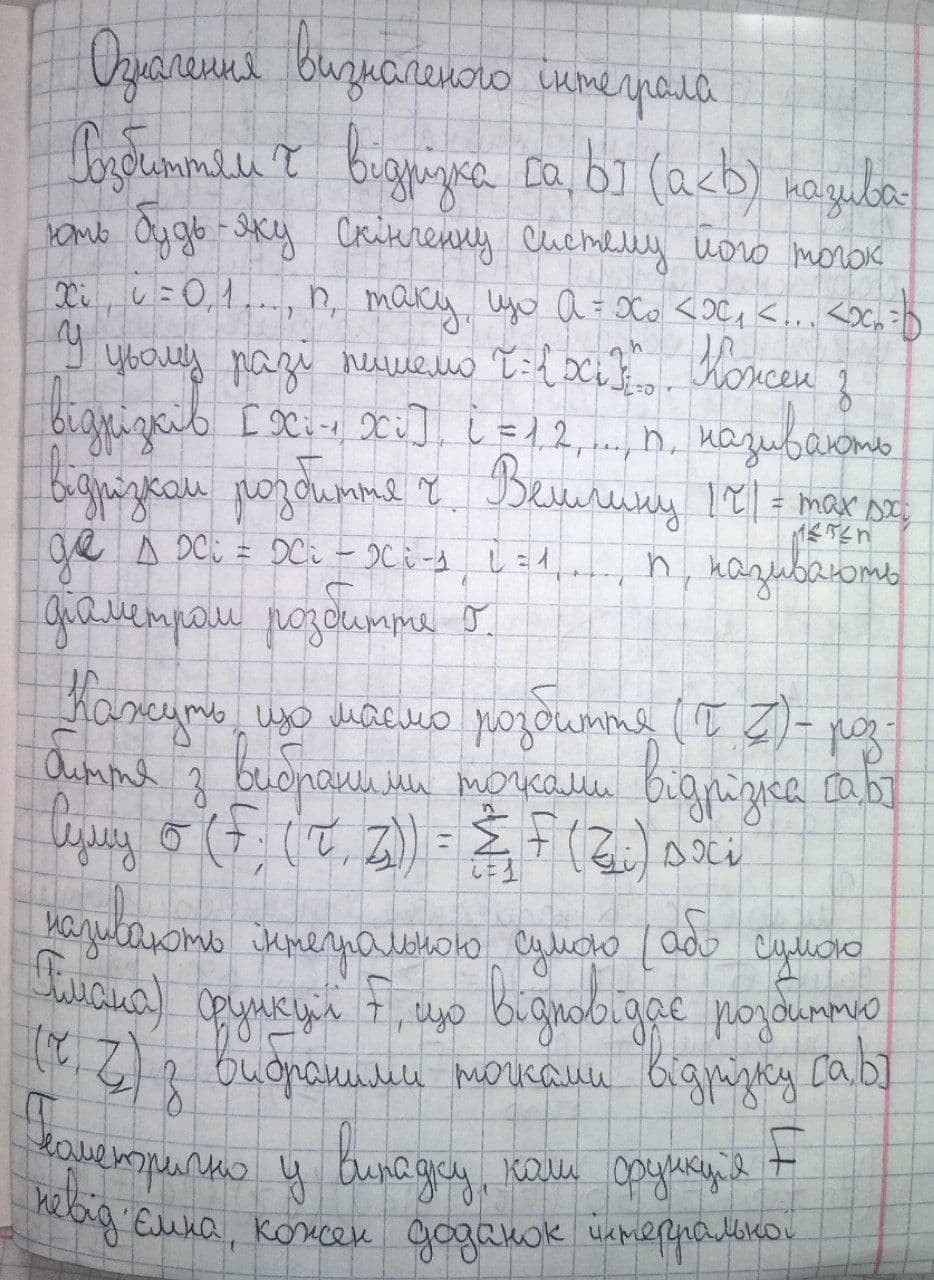 Означення визначеного інтеграла
Розбиттям τ відрізка [a, b] (a<b) назива-
ють будь-яку скінченну систему його точок
xi, i=0,1,...,n, таку, що a=x₀<x₁<...<xₙ=b
У цьому разі пишемо τ={xi}ⁿᵢ₌₀. Кожен з
відрізків [xi-1, xi], i=1,2,...,n, називають
відрізком розбиття τ. Величину |τ|=max Δxi,
1≤τ≤n
де Δxi=xi-xi-1, i=1,...,n, називають
діаметром розбиття τ.
Кажуть, що маємо розбиття (τ, ξ)- роз-
биття з вибраними точками відрізка [a,b]
Суму σ(F;(τ, ξ))=∑ⁿᵢ₌₁ F(ξi)Δxi
називають інтегральною сумою (або сумою
Рімана) функції F, що відповідає розбиттю
(τ, ξ) з вибраними точками відрізку [a,b]
Геометрично у випадку, коли функція F
невід'ємна, кожен доданок інтегральної